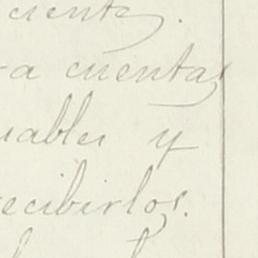 ciente.
ra cuentas
uables y
recibirlos.